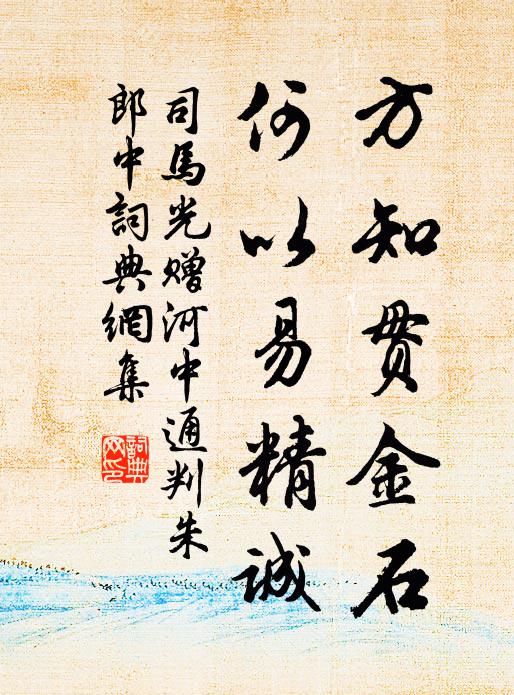 方知贯金石
何以易精誠
司馬光赠河中通判朱
郎中詞典網集
詞典
网印